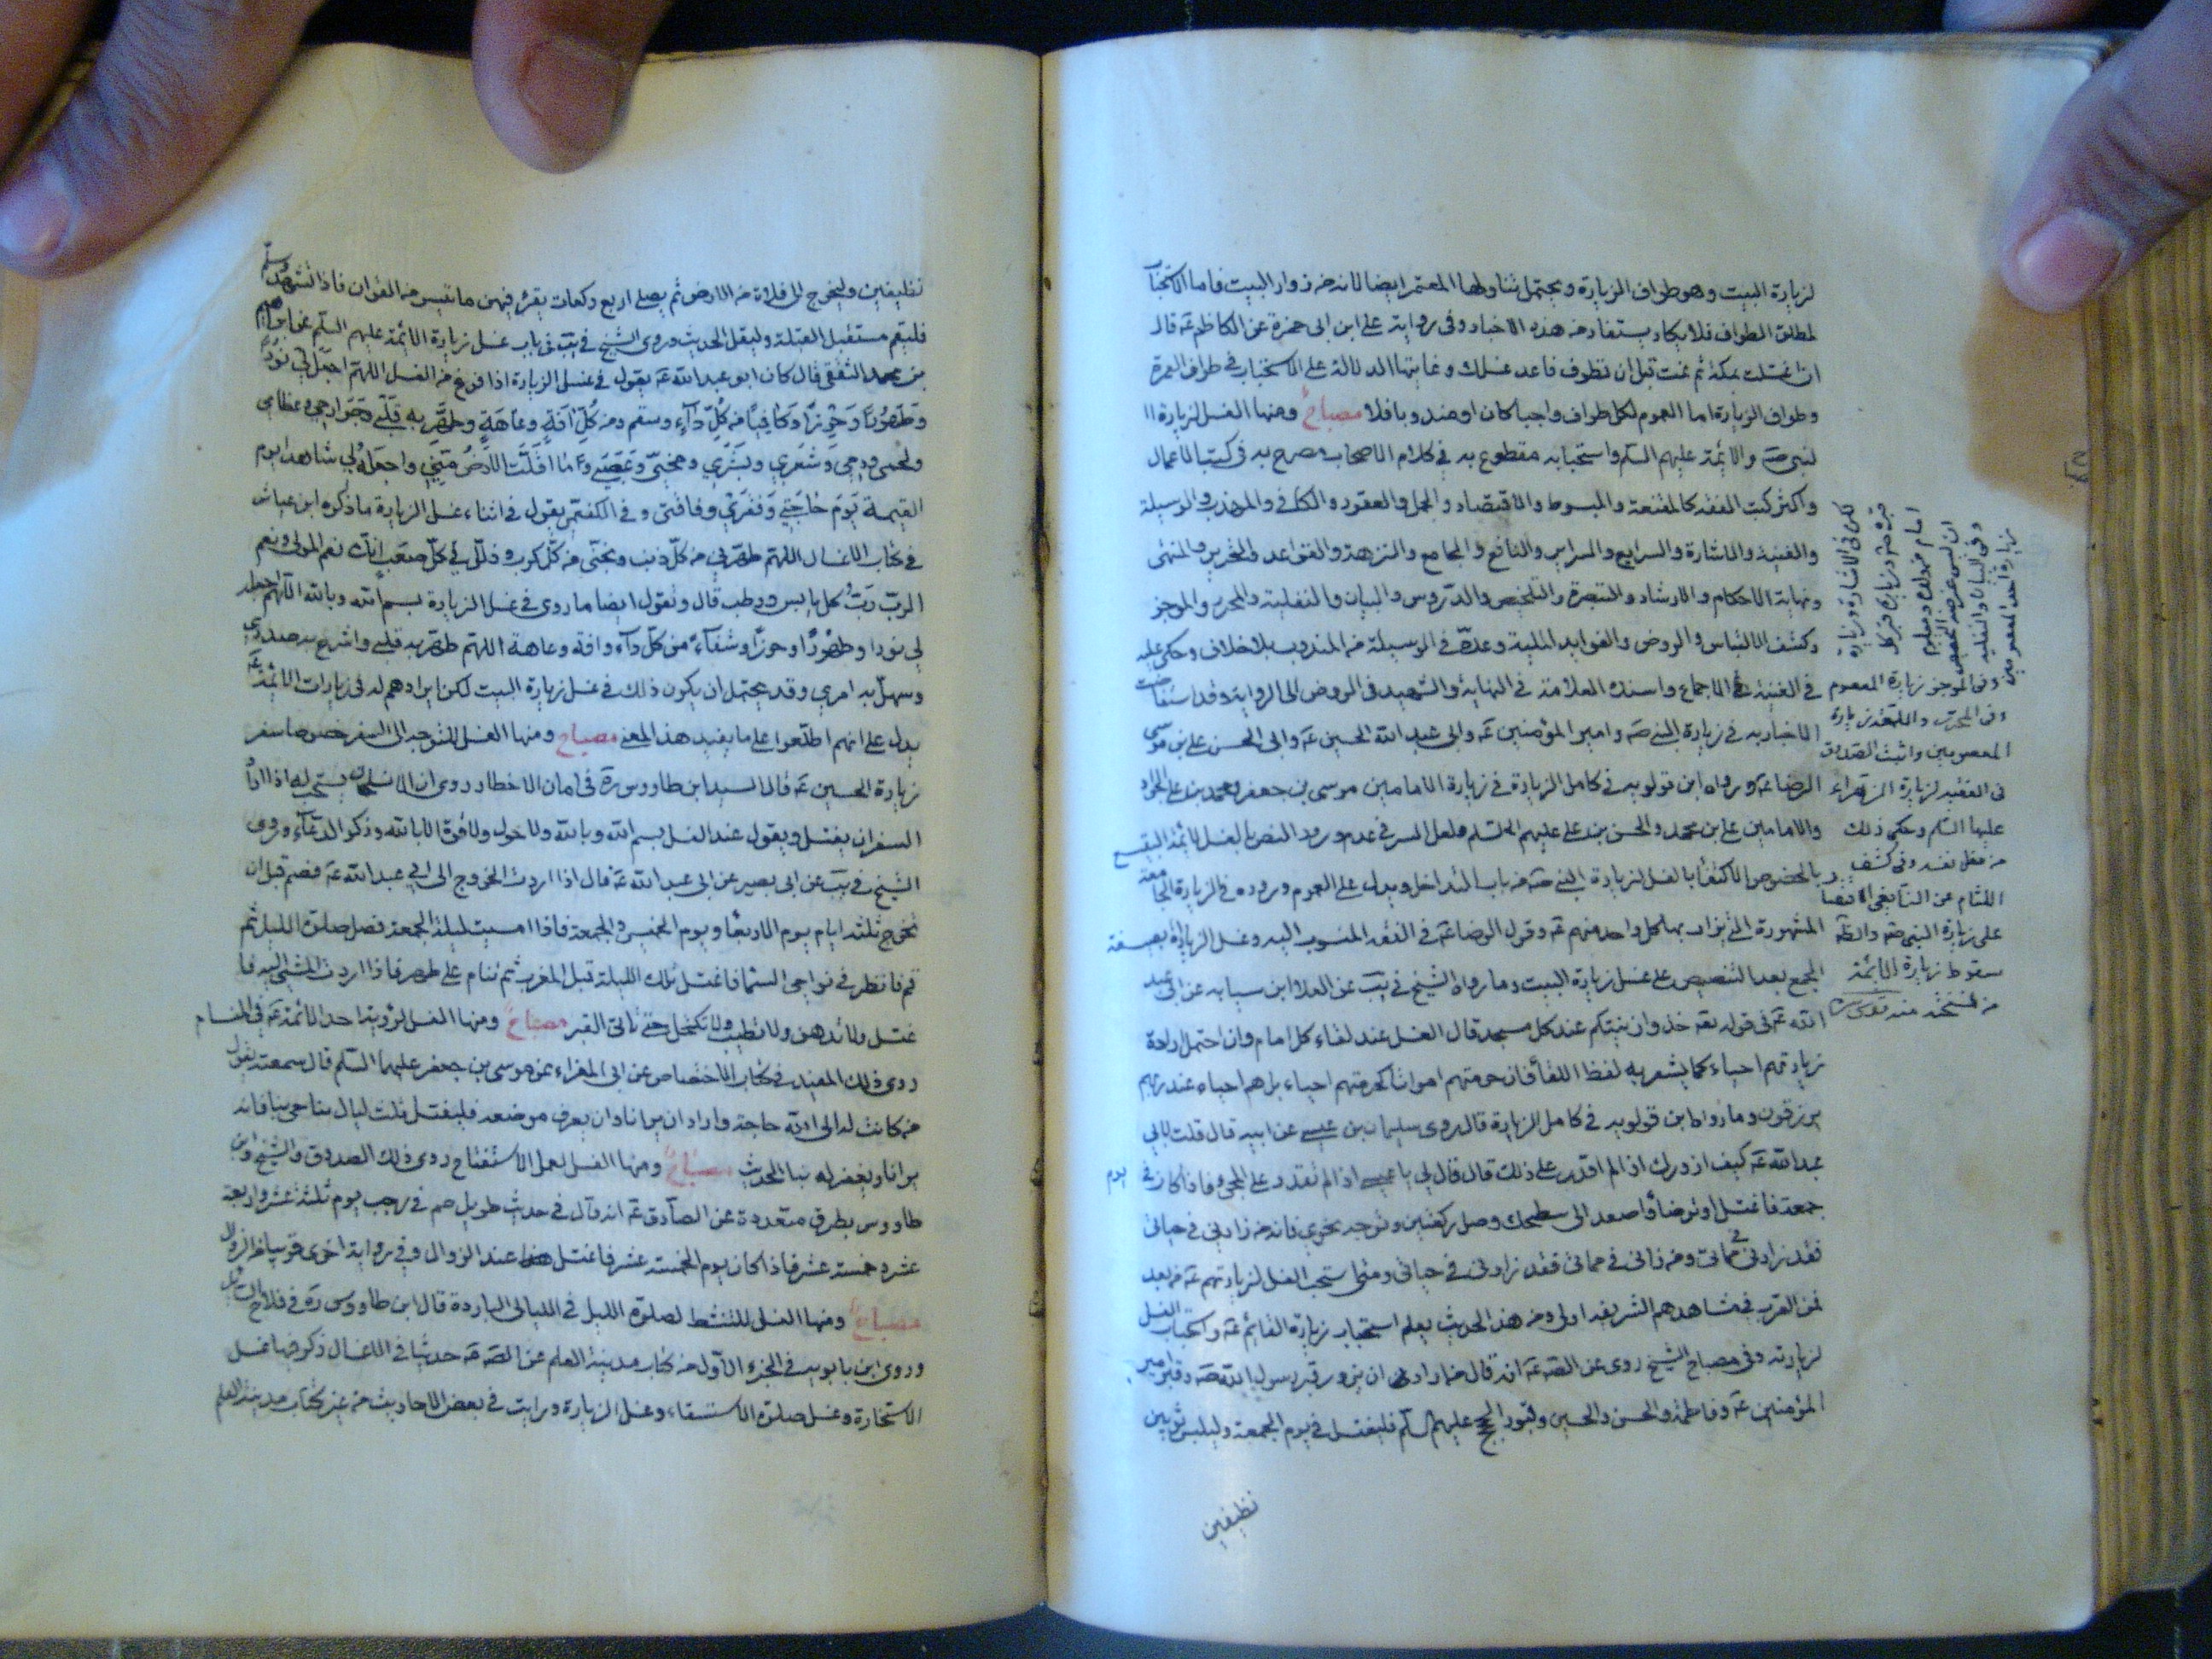 لزيارة البيت وهو طواف الزيارة ويحتمل تناولها المعتمر ايضا لانه من زوار البيت فاما الاستحباب
لمطلق الطواف فلا يكاد يستفاد من هذه الاخبار وفى رواية على ابن ابى حمزة عن الكاظم عه قال
ان اغتسلت بمكة ثم نمت قبل ان تطوف فاعد غسلك وغايتها الدلالة على الاستحباب فى طواف العمرة
وطواف الزيارة اما العموم لكل طواف واجبا كان او مندوبا فلا مصباح ومنها الغسل لزيارة ا
لنبى صه والائمة عليهم السلم واستحبابه مقطوع به فى كلام الاصحاب مصرح به فى كتب الاعمال
واكثر كتب الفقه كالمقنعة والمبسوط والاقتصاد والجمل والعقود والكافى والمهذب والوسيلة
والغنية والاشارة والسرايع والسراير والنافع والجامع والنزهة والقواعد والتحرير والمنتهى
ونهاية الاحكام والارشاد والتبصرة والتلخيص والدروس والبيان والنفلية والمحرر والموجز
وكشف الالتباس والروض والفوايد الملية وعده فى الوسيلة من المندوب بلا خلاف وحكى عليه
فى الغنية الاجماع واسنده العلامة فى النهاية والشهيد فى الروض الى الرواية وقد استفاضت
الاخبار به فى زيارة النبى صه وامير المؤمنين عه وابى عبد الله الحسين عه وابى الحسن على بن موسى
الرضا عه ورواه ابن قولويه فى كامل الزيارة فى زيارة الامامين موسى بن جعفر ومحمد بن على الجواد
والامامين على بن محمد والحسن بن على عليهم السلم ولعل السر فى عدم ورود النص بالغسل لائمة البقيع
بالخصوص الاكتفا بالغسل لزيارة النبى صه من باب التداخل ويدل على العموم وروده فى الزيارة الجامعة
المشهورة التى يزار بها كل واحد منهم عه وقول الرضا عه فى الفقه المنسوب اليه وغسل الزيارة بصيغة
الجمع بعد التنصيص على غسل زيارة البيت وما رواه الشيخ فى يب عن العلا ابن سيابه عن ابى عبد
الله عه فى قوله تعه خذوا زينتكم عند كل مسجد قال الغسل عند لقاء كل امام وان احتمل ارادة
زيارتهم احياء كما يشعر به لفظ اللقا فان حرمتهم امواتا كحرمتهم احياء بل هم احياء عند ربهم
يرزقون وما رواه ابن قولويه فى كامل الزيارة قال روى سليمان بن عيسى عن ابيه قال قلت لابى
عبد الله عه كيف ازورك اذا لم اقدر على ذلك قال قال لى يا عيسى اذا لم تقدر على المجى فاذا كان فى يوم
جمعة فاغتسل او توضأ واصعد الى سطحك وصل ركعتين وتوجه نحوى فانه من زارنى فى حياتى
فقد زارنى فى مماتى ومن زارنى فى مماتى فقد زارنى فى حياتى ومتى استحب الغسل لزيارتهم عه من بعد
فمن القرب فى مشاهدهم الشريفه اولى ومن هذا الحديث يعلم استحباب زيارة القائم عه واستحباب الغسل
لزيارته وفى مصباح الشيخ روى عن الصه عه انه قال من اراد ان يزور قبر رسول الله صه وقبر امير
المؤمنين عه وفاطمة والحسن والحسين وقبور الحجج عليهم السلم فليغتسل فى يوم الجمعة وليلبس ثوبين
نظيفين
لكن فى الاشارة زيارة
امام
وفى البيان والنفليه
زيارة احد المعصومين
وفى الموجز زيارة المعصوم
وفى المحرر واللمعة زيارة
المعصومين واثبت الصدوق
فى الفقيه لزيارة الزهراء
عليها السلم وحكى ذلك
وفى كشف
اللثام عن النابغى الاقتصا
على زيارة النبى صه والظه
سقوط زيارة الائمة
من نسخته منه قدس سره
نظيفين وليخرج الى فلاة من الارض ثم يصلى اربع ركعات يقرء فيهن ما تيسر من القران فاذا تشهد وسلم
فليقم مستقبل القبلة وليقل الحديث وروى الشيخ فى يب فى باب غسل زيارة الائمة عليهم السلم عن ابراهيم
بن محمد الثقفى قال كان ابو عبد الله عه يقول فى غسل الزيارة اذا فرغ من الغسل اللهم اجعل لى نورا
وطهورا وحرزا وكافيا من كل داء وسقم ومن كل افة وعاهة وطهر به قلبى وجوارحى وعظامى
ولحمى ودمى وشعرى وبشرى ومخى وعصبى وما اقلت الارض منى واجعله لى شاهدا يوم
القيمة يوم حاجتى وفقرى وفاقتى وفى الكفعمى يقول فى اثناء غسل الزيارة ما ذكره ابن عياش
فى كتاب الاغسال اللهم طهرنى من كل ذنب ونجنى من كل كرب وذلل لى كل صعب انك نعم المولى ونعم
الرب رب كل يابس ورطب قال وتقول ايضا ما روى فى غسل الزيارة بسم الله وبالله اللهم اجعله
لى نورا وطهورا وحرزا وشفاء من كل داء وافة وعاهة اللهم طهر به قلبى واشرح به صدرى
وسهل به امرى وقد يحتمل ان يكون ذلك فى غسل زيارة البيت لكن ايرادهم له فى زيارات الائمة عه
يدل على انهم اطلعوا على ما يفيد هذا المعنى مصباح ومنها الغسل للتوجه الى السفر خصوصا سفر
زيارة الحسين عه قال السيد ابن طاووس ره فى امان الاخطار روى ان الانسان يستحب له اذا اراد
السفر ان يغتسل ويقول عند الغسل بسم الله وبالله ولا حول ولا قوة الا بالله وذكر الدعاء وروى
الشيخ فى يب عن ابى بصير عن ابى عبد الله عه قال اذا اردت الخروج الى ابى عبد الله عه فصم قبل ان
تخرج ثلثه ايام يوم الاربعا ويوم الخميس والجمعة فاذا امسيت ليلة الجمعة فصل صلوة الليل ثم
قم فانظر فى نواحى السماء فاغتسل تلك الليلة قبل المغرب ثم تنام على طهر فاذا اردت المشى اليه فا
غتسل ولا تدهن ولا تطيب ولا تكتحل حتى تاتى القبر مصباح ومنها الغسل لرؤية احد الائمة عه فى المنام
روى ذلك المفيد فى كتاب الاختصاص عن ابى المغراء عن موسى بن جعفر عليهما السلم قال سمعته يقول
من كانت له الى الله حاجة واراد ان يرانا وان يعرف موضعه فليغتسل ثلث ليال يناجى بنا فانه
يرانا ويغفر له بنا الحديث مصباح ومنها الغسل لعمل الاستفتاح روى ذلك الصدوق والشيخ وابن
طاووس بطرق متعددة عن الصادق عه انه قال فى حديث طويل صم فى رجب يوم ثلثة عشر واربعة
عشر وخمسة عشر فاذا كان يوم الخمسة عشر فاغتسل عند الزوال وفى رواية اخرى قريبا من الزوال
مصباح ومنها الغسل للتنشط لصلوة الليل فى الليالى الباردة قال ابن طاووس ره فى فلاح السائل
وروى ابن بابويه فى الجزء الاول من كتاب مدينة العلم عن الصه عه حديثا فى الاغسال ذكر فيها غسل
الاستخارة وغسل صلوة الاستسقاء وغسل الزيارة ورايت فى بعض الاحاديث من غير كتاب مدينة العلم